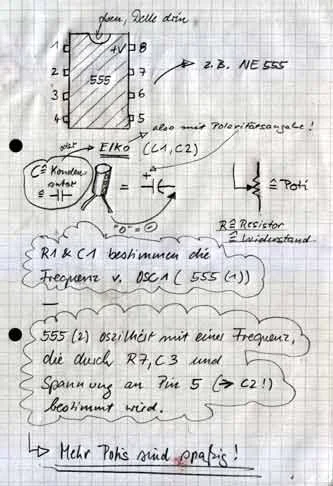 oben, Delle drin
1 +V 8
2 555 7
3 6
4 5
z.B. NE555
also mit Polaritätsangabe!
oder ELKO (C1, C2)
C ≙ Konden-
sator
≙
= +
≙ Poti
"0" = ⊖
R ≙ Resistor
≙ Widerstand
R1 & C1 bestimmen die
Frequenz v. OSC1 (555 (1))
555 (2) oszilliert mit einer Frequenz,
die durch R7, C3 und
Spannung an Pin 5 (→ C2!)
bestimmt wird.
Mehr Potis sind spaßig!